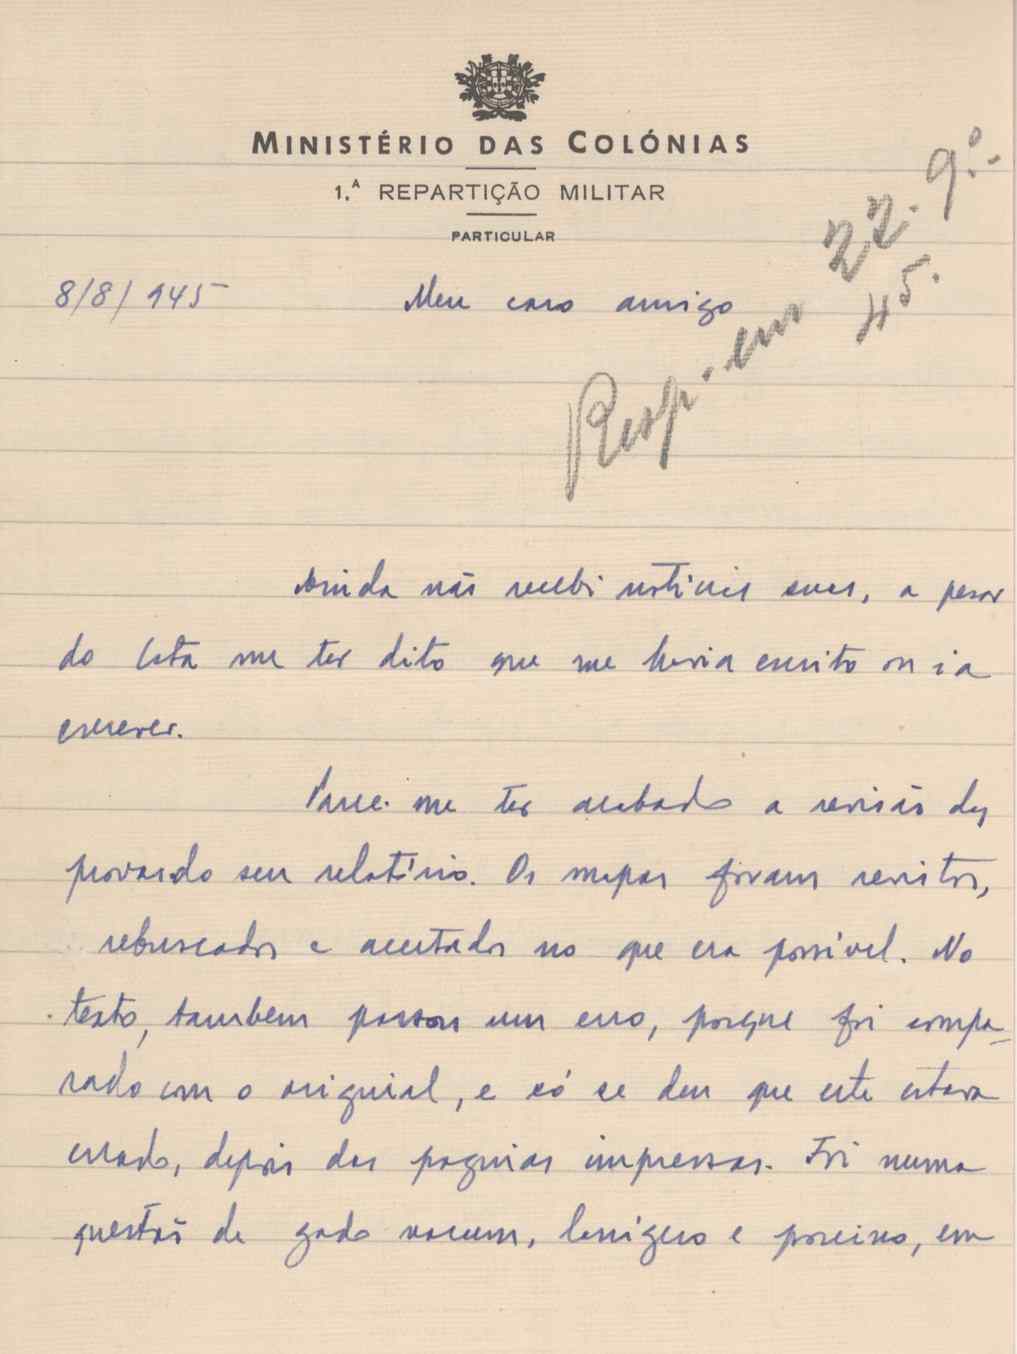 MINISTÉRIO DAS COLÓNIAS
1.ª REPARTIÇÃO MILITAR
PARTICULAR
Resp. em 22.9.º.
45.
8/8/945
Meu caro amigo
Ainda não recebi notícias suas, a pesar
do Cota me ter dito que me havia escrito ou ia
escrever.
Parece-me ter acabado a revisão das
provas do seu relatório. Os mapas foram revistos,
rebuscados e acertados no que era possível. No
texto, tambem passou um erro, porque foi compa-
rado com o original, e só se deu que este estava
errado, depois das paginas impressas. Foi numa
questão de gado vacum, lanígero e porcino, em